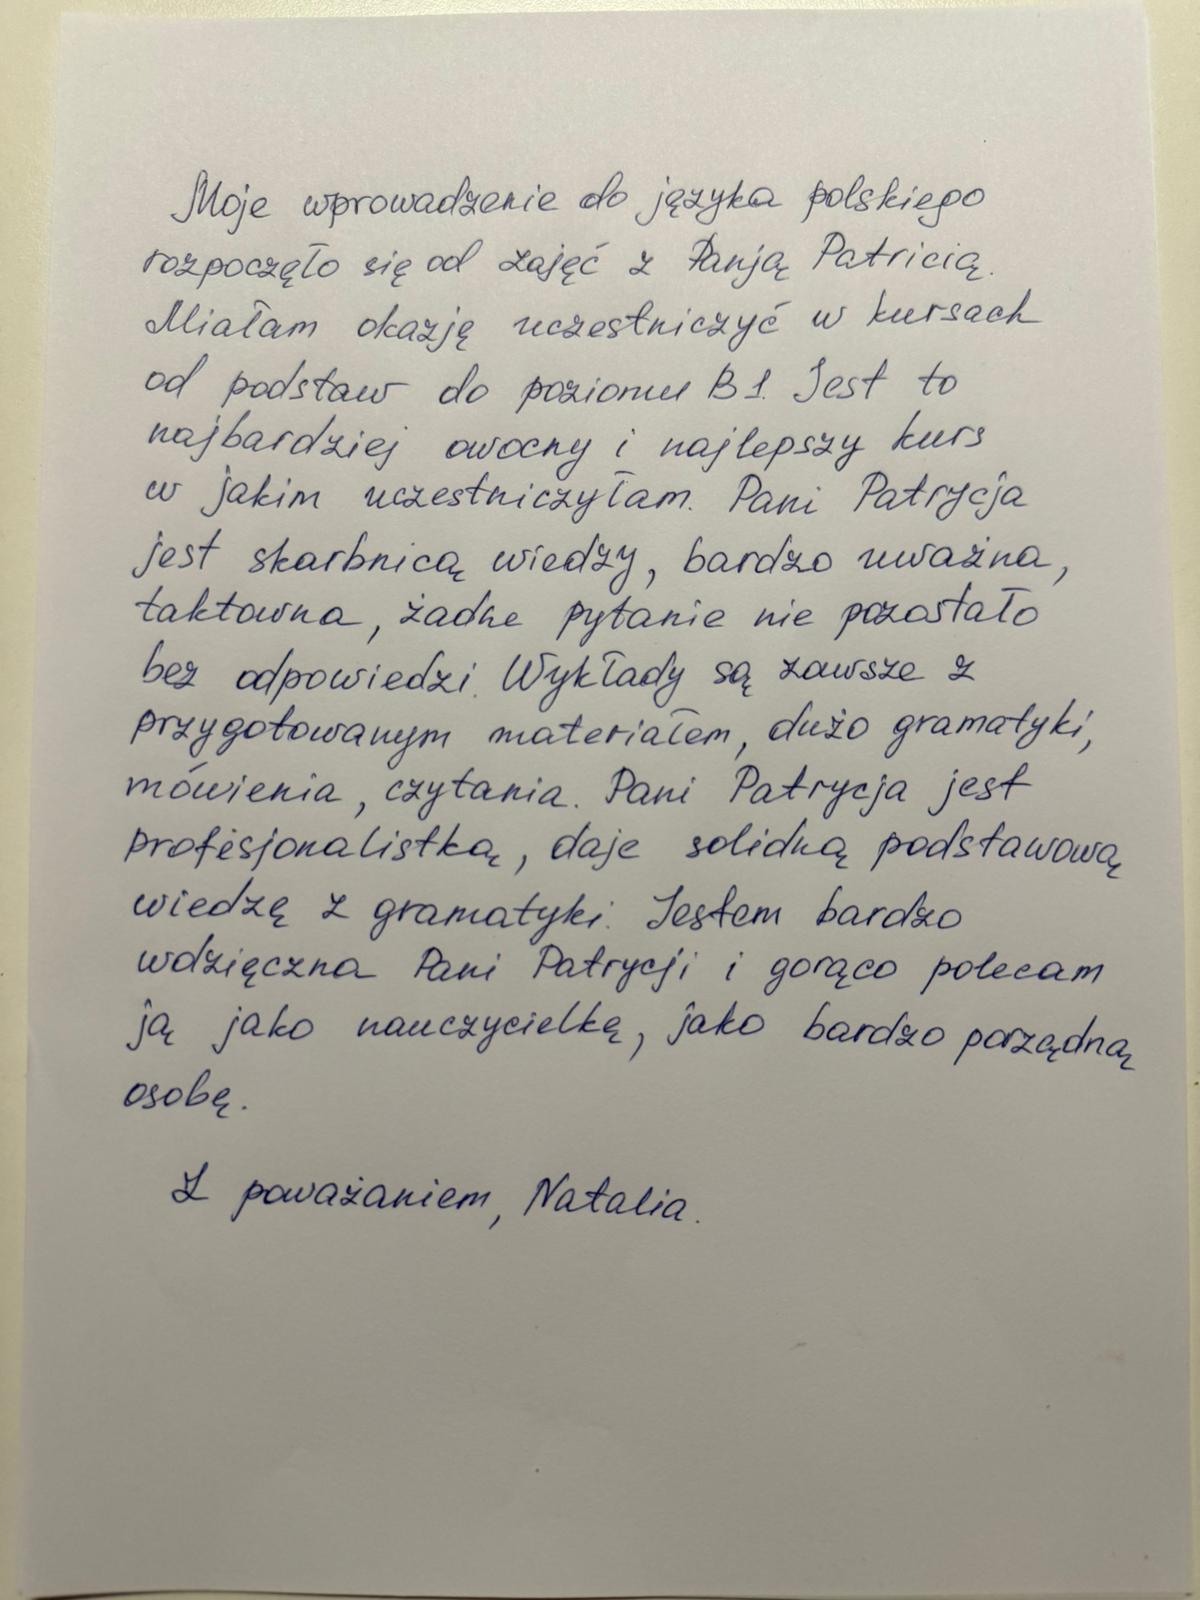 Moje wprowadzenie do języka polskiego
rozpoczęło się od zajęć z Panją Patricią.
Miałam okazję uczestniczyć w kursach
od podstaw do poziomu B1. Jest to
najbardziej owocny i najlepszy kurs
w jakim uczestniczyłam. Pani Patrycja
jest skarbnicą wiedzy, bardzo uważna,
taktowna, żadne pytanie nie pozostało
bez odpowiedzi. Wykłady są zawsze z
przygotowanym materiałem, dużo gramatyki,
mówienia, czytania. Pani Patrycja jest
profesjonalistką, daje solidną podstawową
wiedzę z gramatyki. Jestem bardzo
wdzięczna Pani Patrycji i gorąco polecam
ją jako nauczycielkę, jako bardzo porządną
osobę.
Z poważaniem, Natalia.